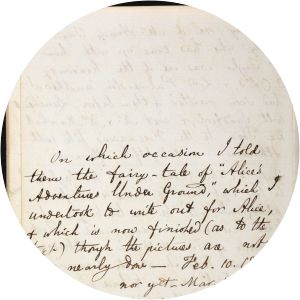 On which occasion I told
them the fairy-tale of "Alice's
Adventures Under Ground", which I
undertook to write out for Alice,
& which is now finished (as to the
text) though the pictures are not
nearly done — Feb. 10.
nor yet — Mar.